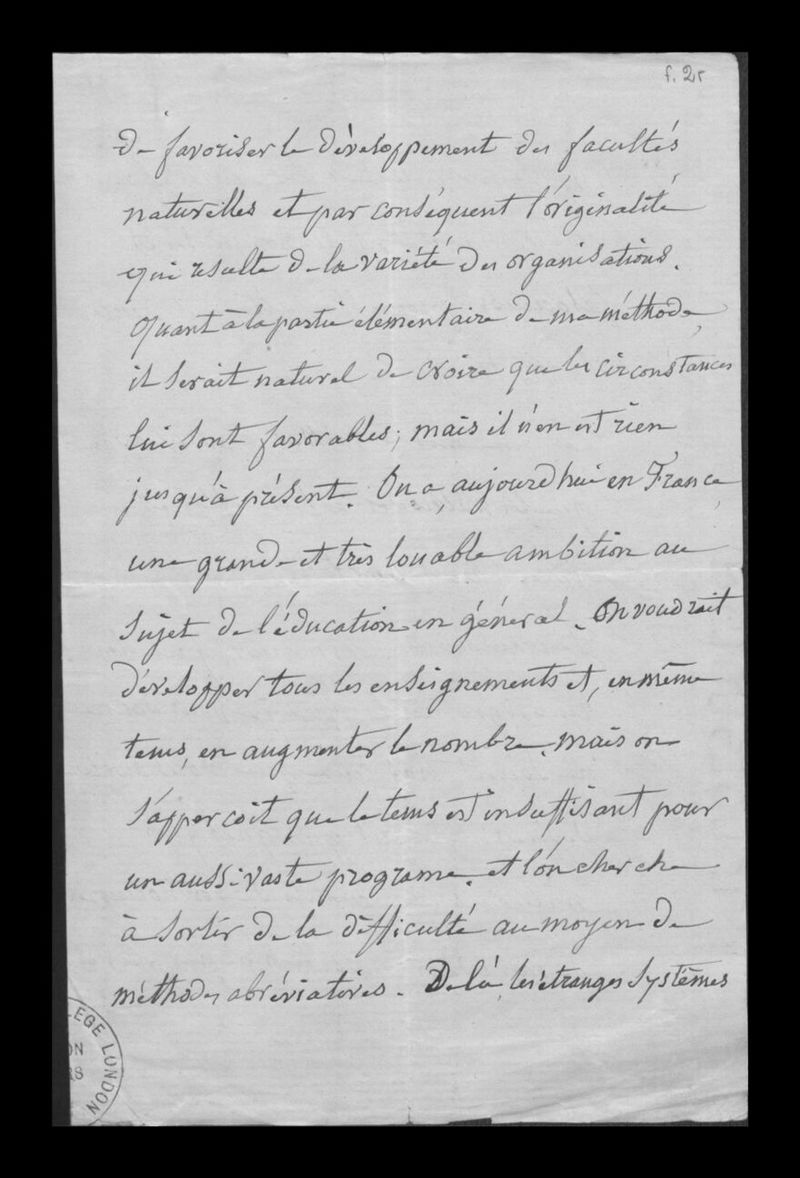 f. 2r
de favoriser le développement des facultés
naturelles et par conséquent l'originalité
qui résulte de la variété des organisations.
Quant à la partie élémentaire de ma méthode,
il serait naturel de croire que les circonstances
lui sont favorables; mais il n'en est rien
jusqu'à présent. On a, aujourd'hui en France,
une grande et très louable ambition au
sujet de l'éducation en général. On voudrait
développer tous les enseignements et, en même
tems, en augmenter le nombre. mais on
s'apperçoit que le tems est insuffisant pour
un aussi vaste programe. et l'on cherche
à sortir de la difficulté au moyen de
méthodes abréviatives. De là, les étranges systêmes
LEGE LONDON
ON
RS